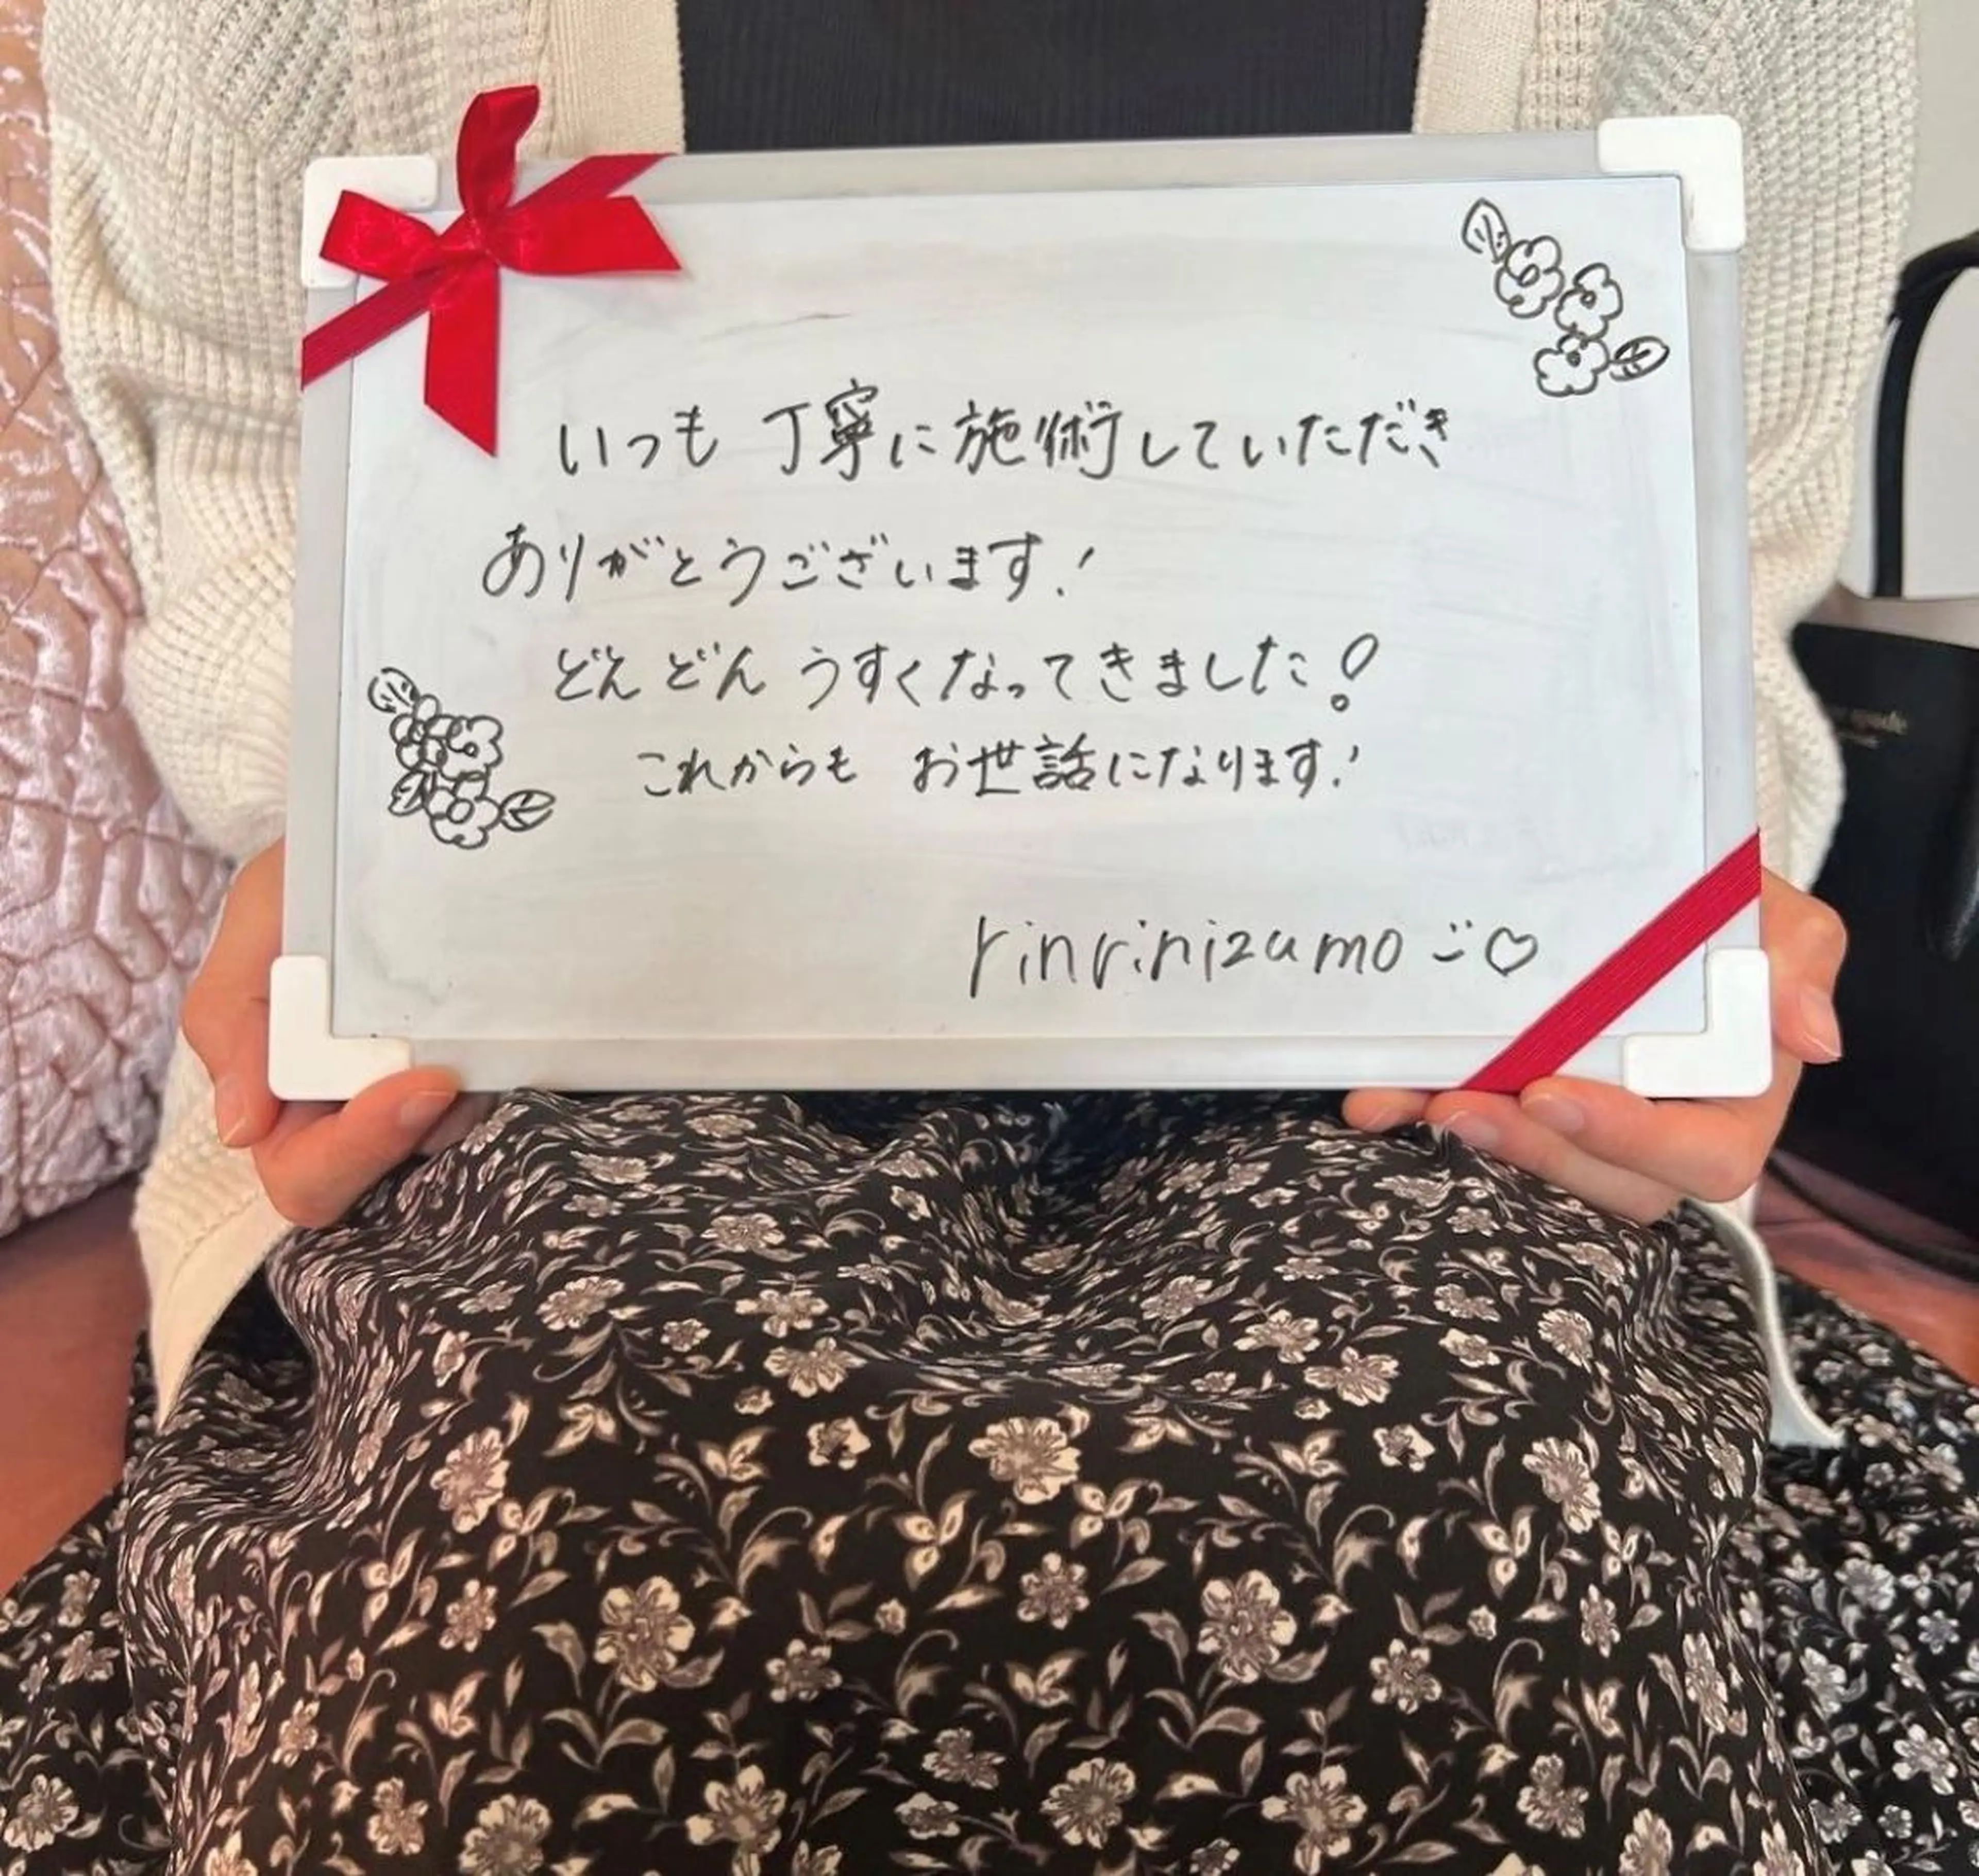 いつも 丁寧に施術していただき
ありがとうございます!
どんどん うすくなってきました!
これからも お世話になります!
rinrinizumo
spade